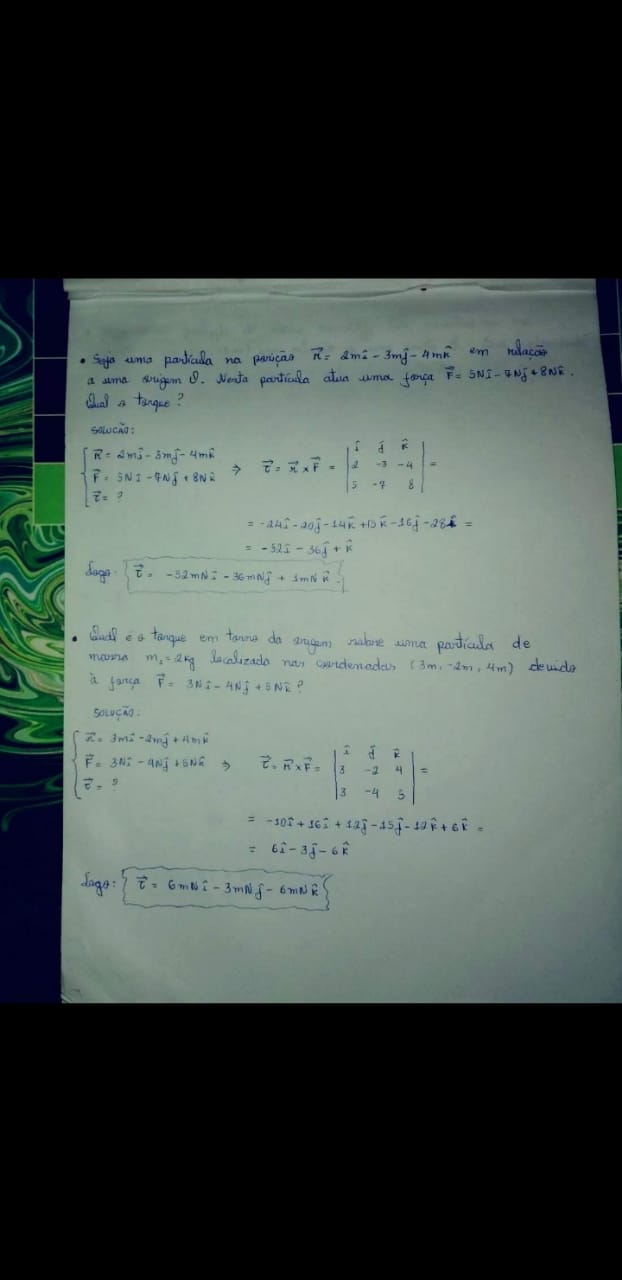 • Seja uma partícula na posição r⃗ = 2mî - 3mĵ - 4mk̂ em relação
a uma origem O. Nesta partícula atua uma força F⃗ = 5Nî - 7Nĵ + 8Nk̂.
Qual o torque?
SOLUÇÃO:
r⃗ = 2mî - 3mĵ - 4mk̂
F⃗ = 5Nî - 7Nĵ + 8Nk̂
τ⃗ = ?
⇒ τ⃗ = r⃗ × F⃗ = | î ĵ k̂ |
| 2 -3 -4 | =
| 5 -7 8 |
= -24î - 20ĵ - 14k̂ + 15k̂ - 16ĵ - 28î =
= -52î - 36ĵ + k̂
Logo: τ⃗ = -52mNî - 36mNĵ + 1mNk̂
• Qual é o torque em torno da origem sobre uma partícula de
massa m₁ = 2kg localizada nas coordenadas (3m, -2m, 4m) devido
à força F⃗ = 3Nî - 4Nĵ + 5Nk̂?
SOLUÇÃO:
r⃗ = 3mî - 2mĵ + 4mk̂
F⃗ = 3Nî - 4Nĵ + 5Nk̂
τ⃗ = ?
⇒ τ⃗ = r⃗ × F⃗ = | î ĵ k̂ |
| 3 -2 4 | =
| 3 -4 5 |
= -10î + 16î + 12ĵ - 15ĵ - 12k̂ + 6k̂ =
= 6î - 3ĵ - 6k̂
Logo: τ⃗ = 6mNî - 3mNĵ - 6mNk̂